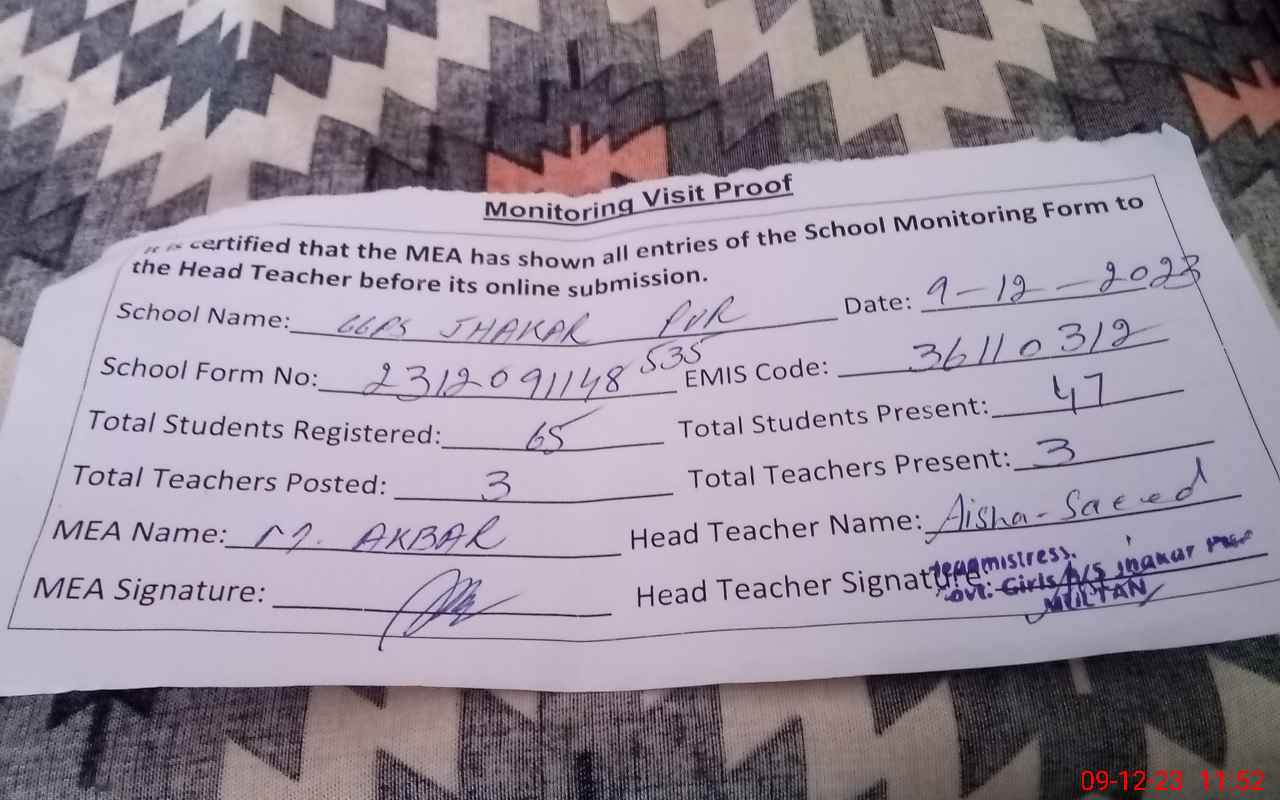 Monitoring Visit Proof
It is certified that the MEA has shown all entries of the School Monitoring Form to
the Head Teacher before its online submission.
School Name: GGPS JHAKAR PUR Date: 9-12-2023
School Form No: 2312091148535 EMIS Code: 36110312
Total Students Registered: 65 Total Students Present: 47
Total Teachers Posted: 3 Total Teachers Present: 3
MEA Name: M. AKBAR Head Teacher Name: Aisha-Saeed
MEA Signature: Head Teacher Signature
Girls P/S Jhakar
MULTAN
09-12-23 11:52